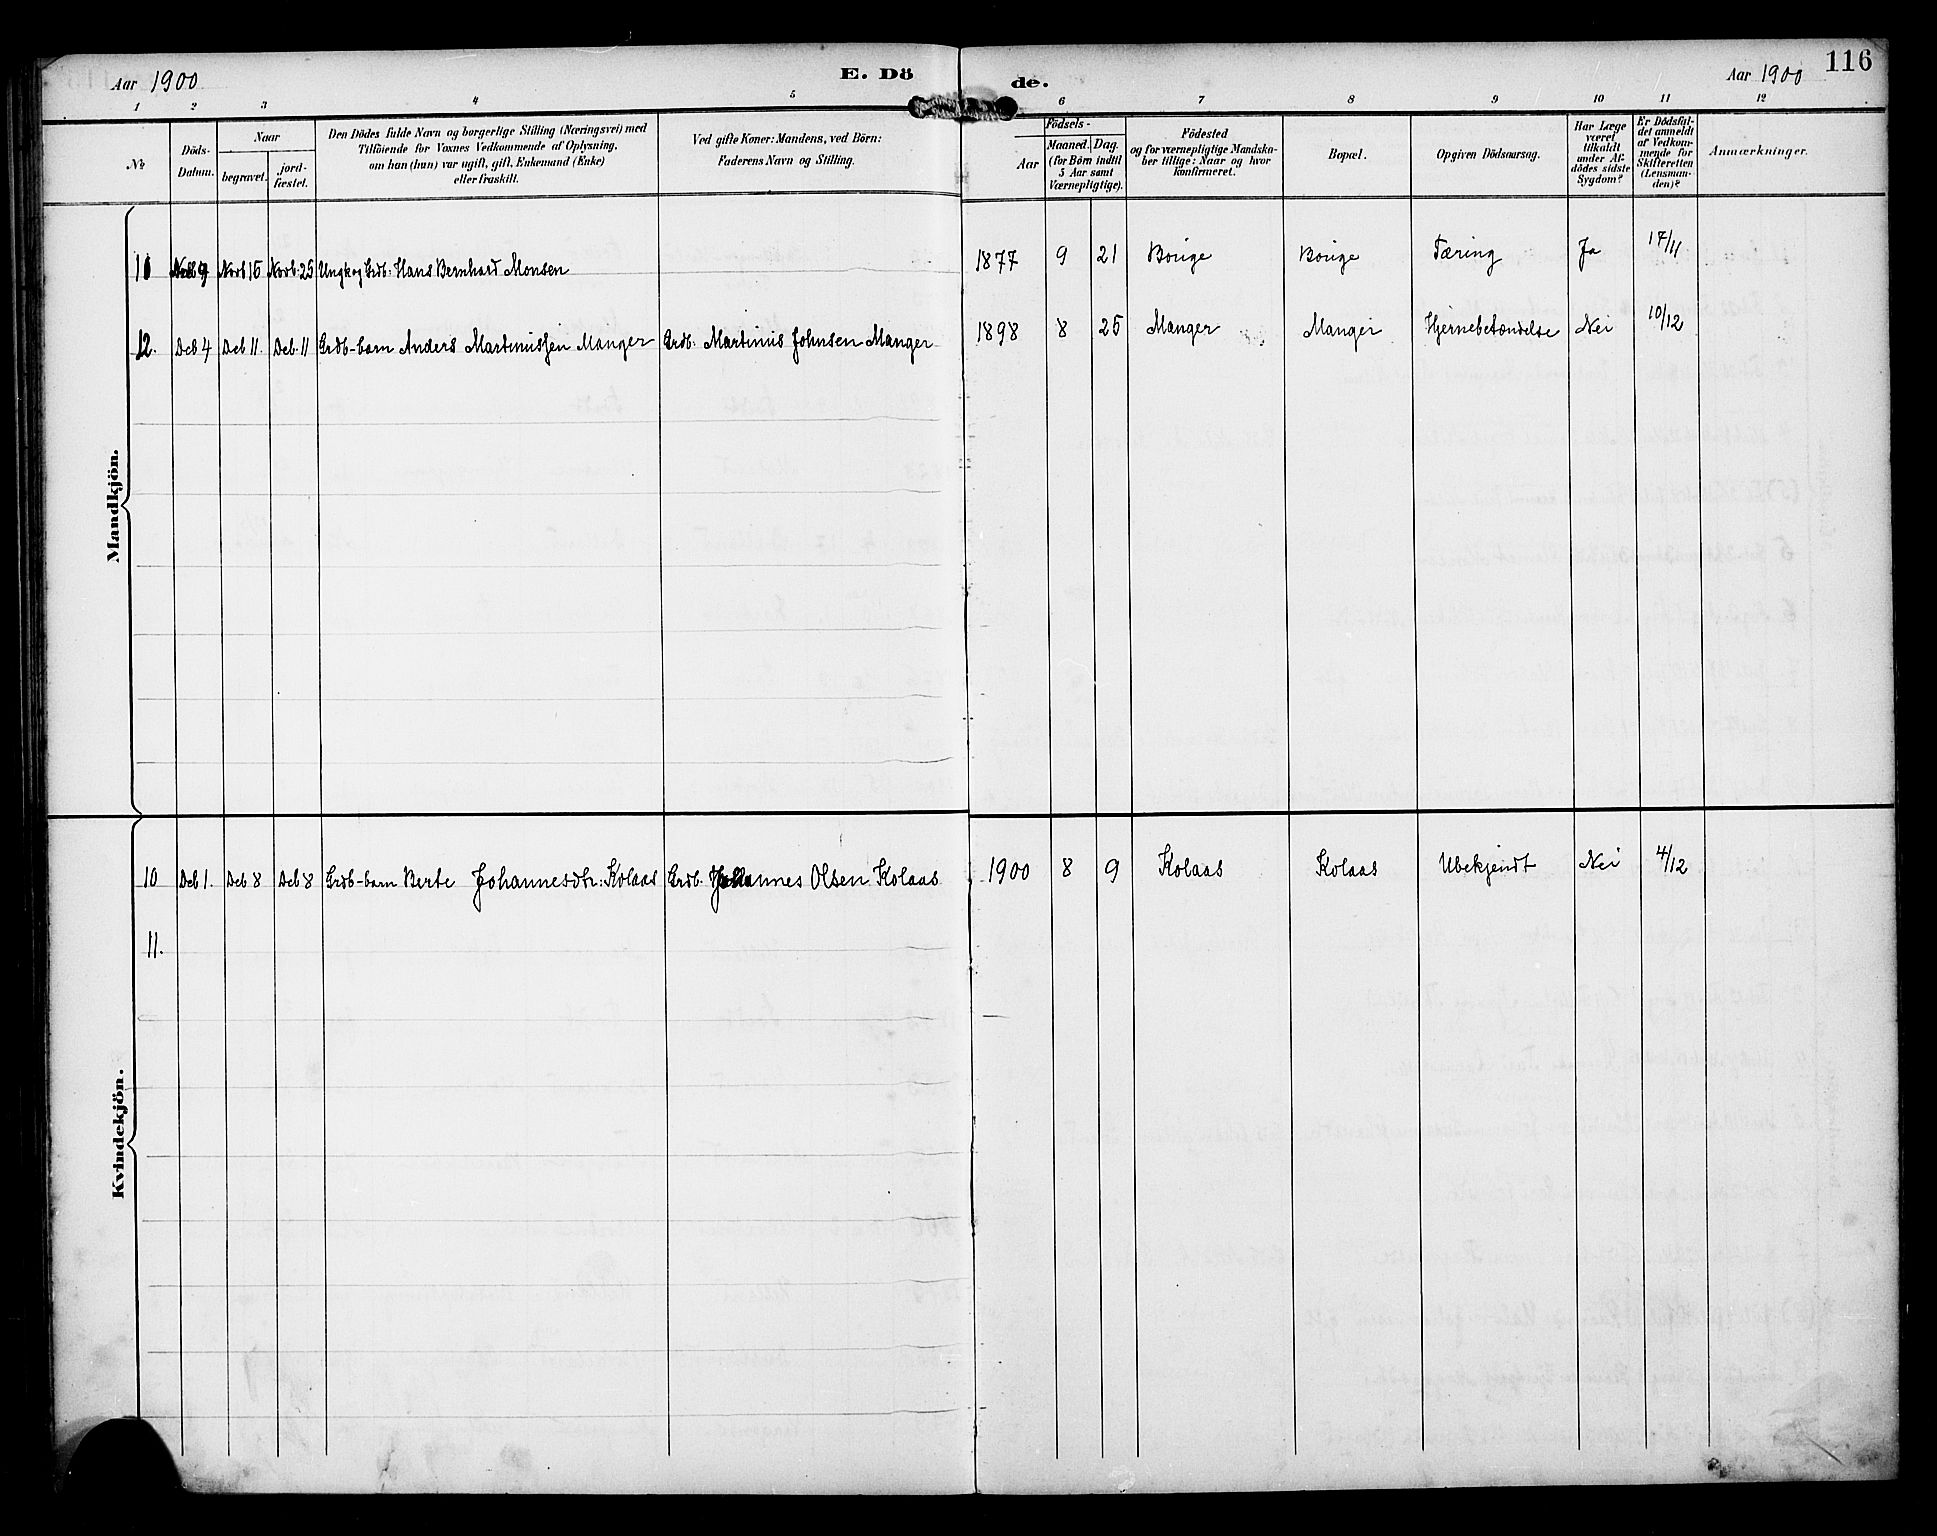 116
Aar 1900
E. Dö
de.
Aar 1900
1 2 3 4 5 6 7 8 9 10 11 12
№
Döds-
Datum.
Naar
begravet.
jord-
fæstet.
Den Dödes fulde Navn og borgerlige Stilling (Næringsvei) med
Tilföiende for Voxnes Vedkommende af Oplysning,
om han (hun) var ugift, gift, Enkemand (Enke)
eller fraskilt.
Ved gifte Koner: Mandens, ved Börn:
Faderens Navn og Stilling.
Födsels-
Aar
Maaned.
Dag.
(for Börn indtil
5 Aar samt
Værnepligtige).
Födested
og for værnepligtige Mandska-
ber tillige: Naar og hvor
konfirmeret.
Bopæl.
Opgiven Dödsaarsag.
Har Læge
været
tilkaldt
under Af-
dödes sidste
Sygdom?
Er Dödsfal-
det anmeldt
af Vedkom-
mende for
Skifteretten
(Lensman-
den)?
Anmærkninger.
Mandkjön.
11 Novb 9 Novb 15 Novb: 25 Ungk og Grdb: Hans Bernhard Monsen 1877 9 21 Boiige Boiige Tæring Ja 17/11
12. Deb 4 Deb 11. Deb. 11 Grdb-barn Anders Martinussen Manger Grdb: Martinus Johnsen Manger 1898 8 25 Manger Manger Hjernebetændelse Nei 10/12
Kvindekjön.
10 Deb 1. Deb 8 Deb 8 Grdb-barn Berte Johannesdtr: Kolaas Grdb. Johannes Olsen Kolaas 1900 8 9 Kolaas Kolaas Ubekjendt Nei 4/12
11.